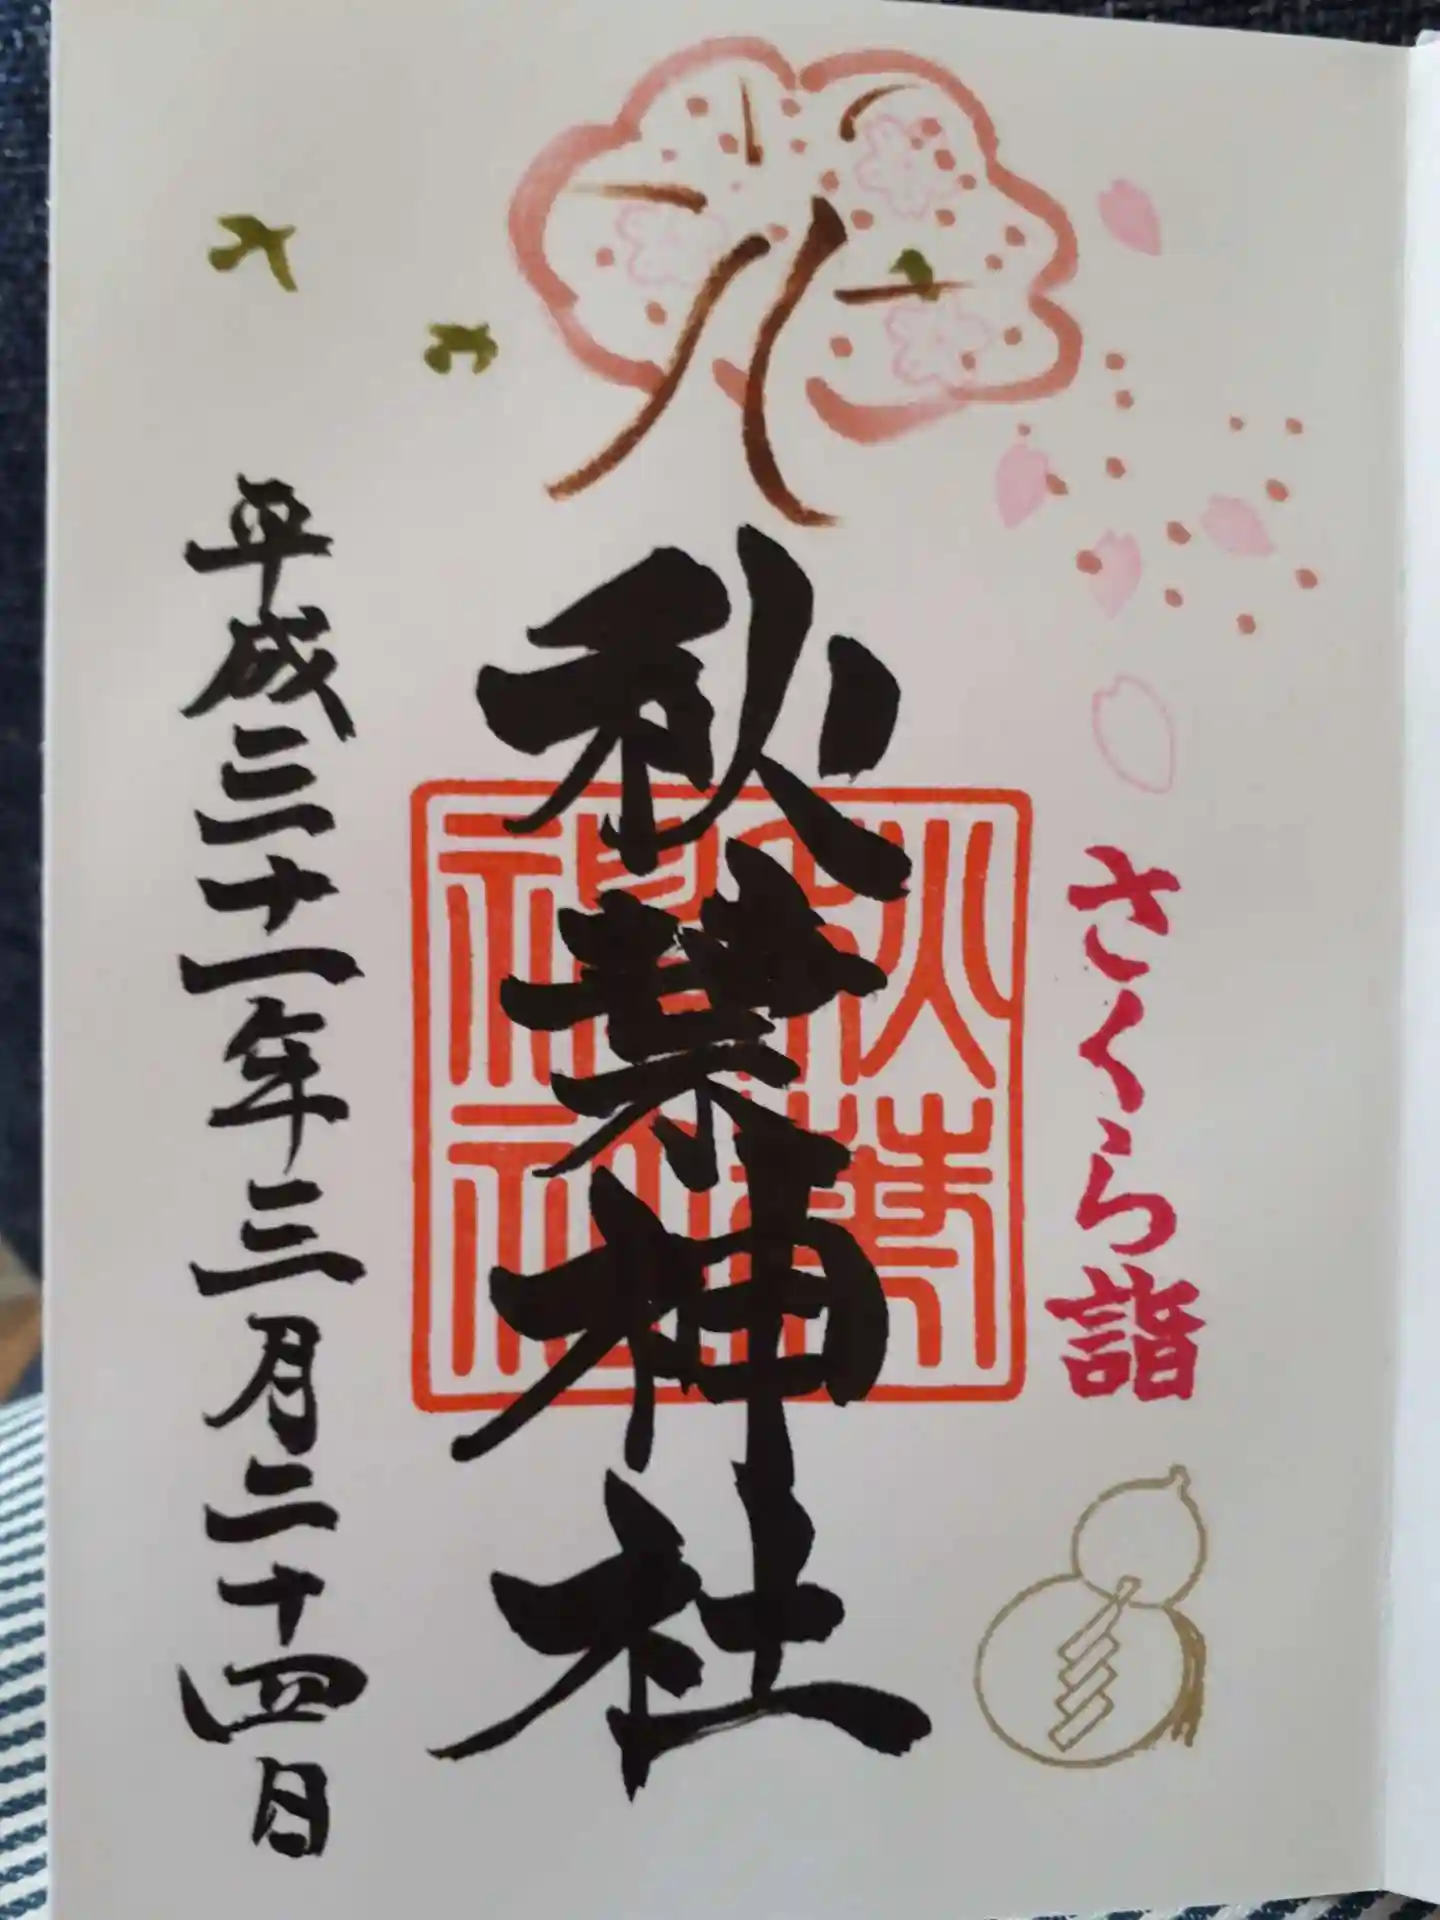 さくら詣
秋葉神社
秋葉神社
平成三十一年三月二十四日